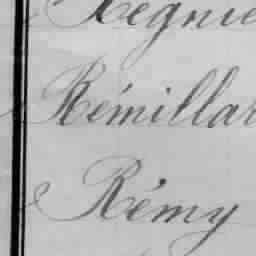 Regnie
Rémillar
Rémy